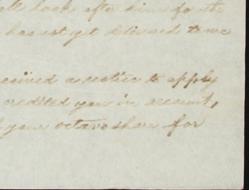 look after him for the
has not yet delivered to me
received a notice to apply
credited you in account,
your octavo share for